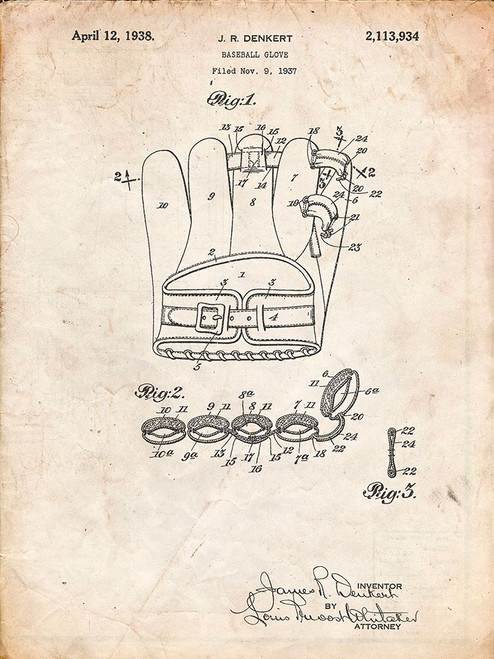 April 12, 1938. J. R. DENKERT 2,113,934
BASEBALL GLOVE
Filed Nov. 9, 1937
Fig:1.
13 15 16 15 12 18 3 24
20
2 2
17 14 3 20 22
10 9 8 7 19 24 6
21
23
2
1
3 3
4
5
Fig:2.
6
11
6a
10 11 9 11 8a 8 11 7 11
20
24
22
10a 9a 15 17 16 15 12 7a 18 22
22
24
22
Fig:3.
James R. Denkert INVENTOR
BY
Louis Prevost Whitaker
ATTORNEY